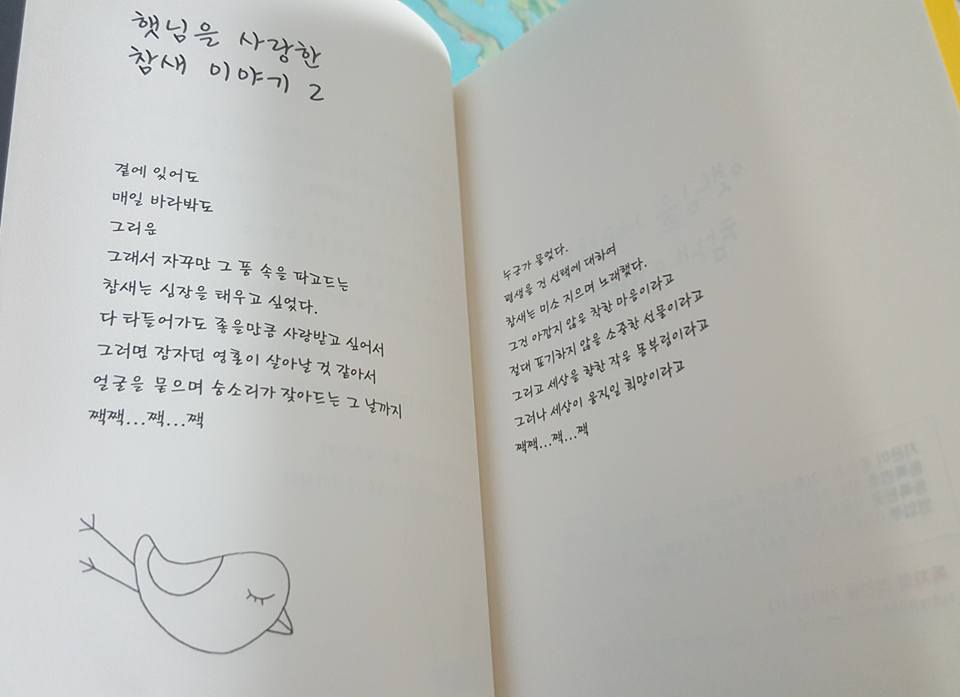 햇님을 사랑한
참새 이야기 2
곁에 있어도
매일 바라봐도
그리운
그래서 자꾸만 그 품 속을 파고드는
참새는 심장을 태우고 싶었다.
다 타들어가도 좋을만큼 사랑받고 싶어서
그러면 잠자던 영혼이 살아날 것 같아서
얼굴을 묻으며 숨소리가 잦아드는 그 날까지
짹짹...짹...짹
누군가 물었다.
평생을 건 선택에 대하여
참새는 미소 지으며 노래했다.
그건 아깝지 않을 착한 마음이라고
절대 포기하지 않을 소중한 선물이라고
그리고 세상을 향한 작은 몸부림이라고
그러나 세상이 움직일 희망이라고
짹짹...짹...짹